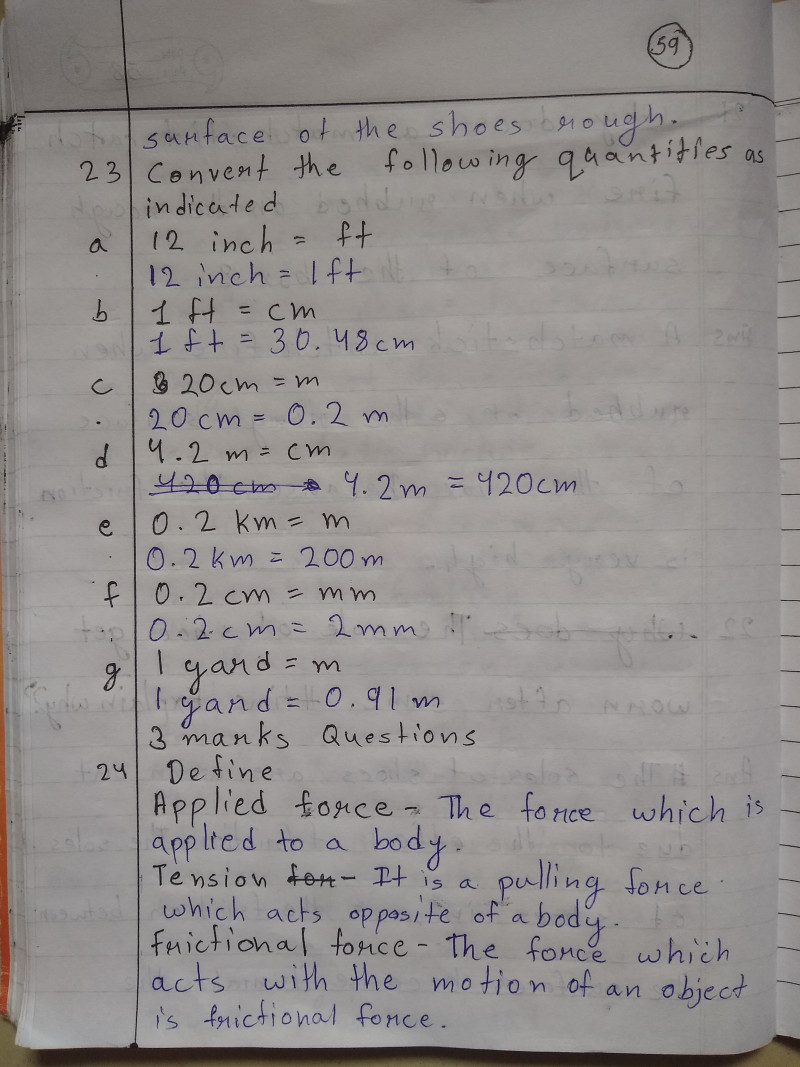 59
surface of the shoes rough.
23 Convert the following quantities as
indicated
a 12 inch = ft
12 inch = 1 ft
b 1 ft = cm
1 ft = 30.48 cm
c 20 cm = m
20 cm = 0.2 m
d 4.2 m = cm
420 cm 4.2 m = 420 cm
e 0.2 km = m
0.2 km = 200 m
f 0.2 cm = mm
0.2 cm = 2 mm
g 1 yard = m
1 yard = 0.91 m
3 marks Questions
24 Define
Applied force - The force which is
applied to a body.
Tension for - It is a pulling force
which acts opposite of a body.
Frictional force - The force which
acts with the motion of an object
is frictional force.